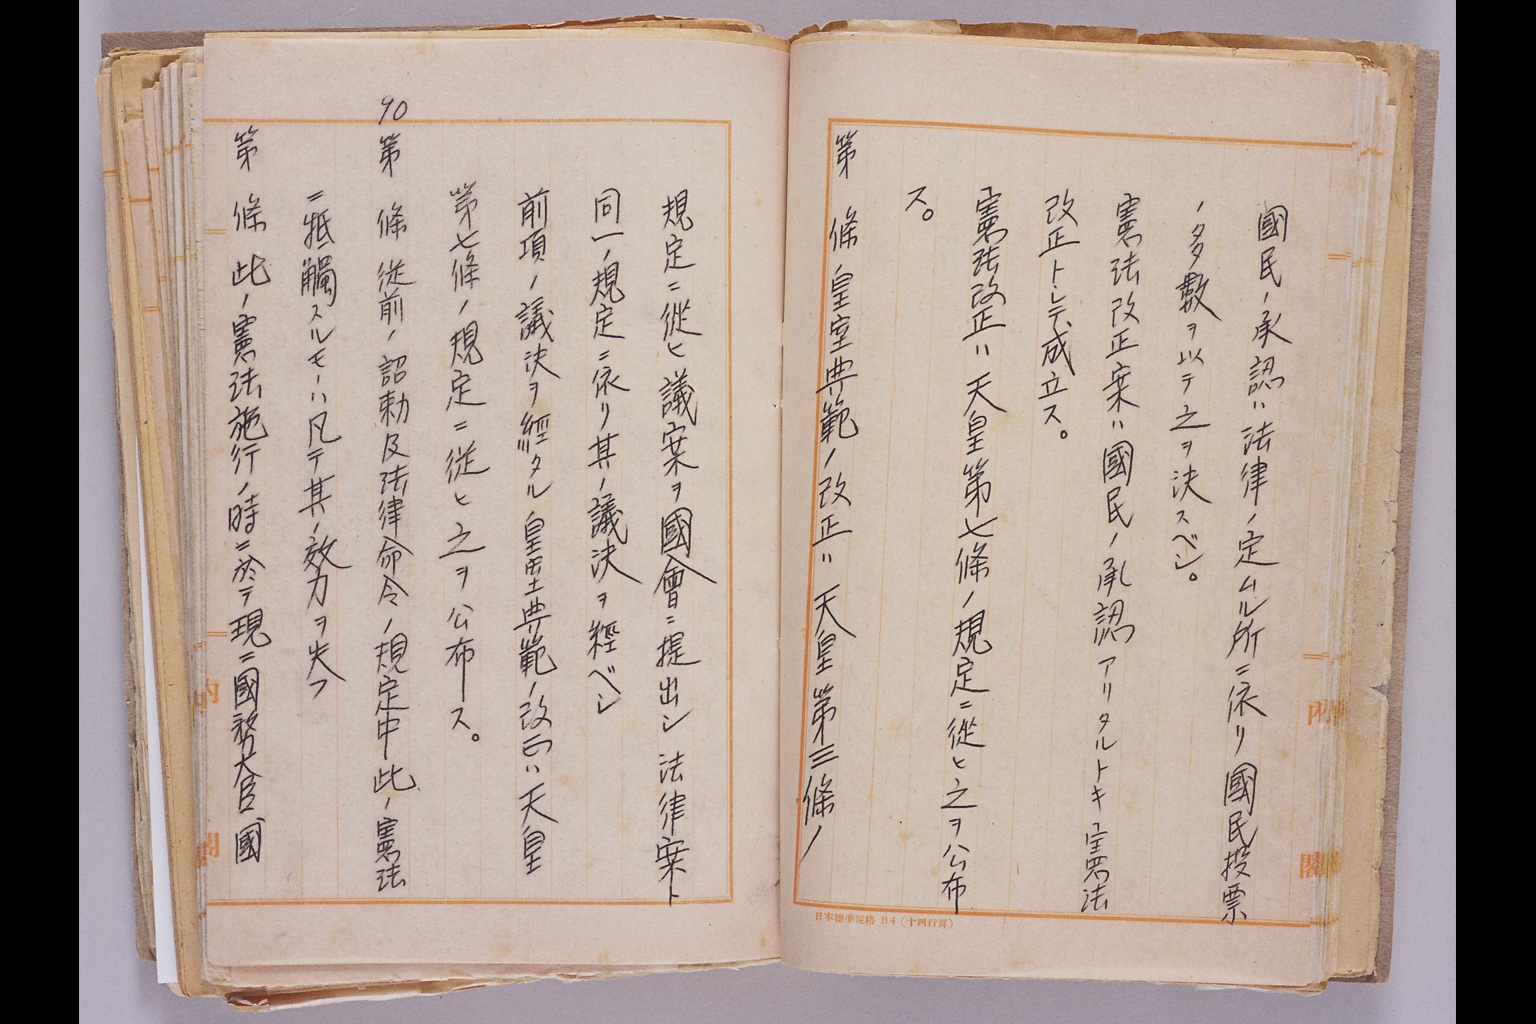 國民ノ承認ハ法律ノ定ムル所ニ依リ國民投票
ノ多數ヲ以テ之ヲ決スベシ。
憲法改正案ハ國民ノ承認アリタルトキ憲法
改正トシテ成立ス。
憲法改正ハ天皇第七條ノ規定ニ從ヒ之ヲ公布
ス。
第 條 皇室典範ノ改正ハ天皇第三條ノ
日本標準規格 B4(十四行罫)
內閣
規定ニ從ヒ議案ヲ國會ニ提出シ法律案ト
同一ノ規定ニ依リ其ノ議決ヲ經ベシ
前項ノ議決ヲ經タル皇室典範ノ改正ハ天皇
第七條ノ規定ニ従ヒ之ヲ公布ス。
90
第 條 従前ノ詔勅及法律命令ノ規定中此ノ憲法
ニ抵觸スルモノハ凡テ其ノ效力ヲ失フ
第 條 此ノ憲法施行ノ時ニ於テ現ニ國務大臣國
內閣